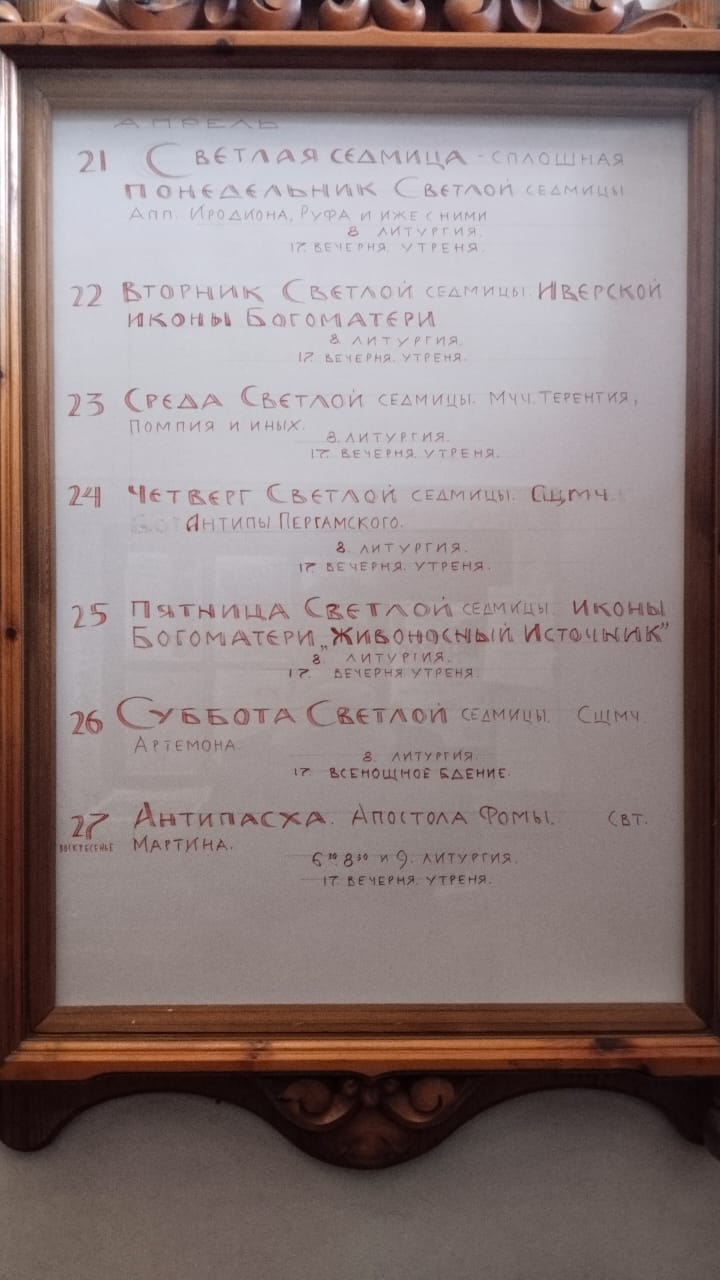 АПРЕЛЬ
21 СВЕТЛАЯ СЕДМИЦА - СПЛОШНАЯ
ПОНЕДЕЛЬНИК СВЕТЛОЙ СЕДМИЦЫ
АПП. ИРОДИОНА, РУФА И ИЖЕ С НИМИ
8 ЛИТУРГИЯ.
17. ВЕЧЕРНЯ. УТРЕНЯ.
22 ВТОРНИК СВЕТЛОЙ СЕДМИЦЫ. ИВЕРСКОЙ
ИКОНЫ БОГОМАТЕРИ
8. ЛИТУРГИЯ.
17. ВЕЧЕРНЯ. УТРЕНЯ.
23 СРЕДА СВЕТЛОЙ СЕДМИЦЫ. МУЧ. ТЕРЕНТИЯ,
ПОМПИЯ И ИНЫХ.
8. ЛИТУРГИЯ.
17. ВЕЧЕРНЯ. УТРЕНЯ.
24 ЧЕТВЕРГ СВЕТЛОЙ СЕДМИЦЫ. СЩМЧ.
АНТИПЫ ПЕРГАМСКОГО.
8. ЛИТУРГИЯ.
17. ВЕЧЕРНЯ. УТРЕНЯ.
25 ПЯТНИЦА СВЕТЛОЙ СЕДМИЦЫ. ИКОНЫ
БОГОМАТЕРИ „ЖИВОНОСНЫЙ ИСТОЧНИК”
8. ЛИТУРГИЯ.
17. ВЕЧЕРНЯ. УТРЕНЯ.
26 СУББОТА СВЕТЛОЙ СЕДМИЦЫ. СЩМЧ.
АРТЕМОНА.
8. ЛИТУРГИЯ.
17. ВСЕНОЩНОЕ БДЕНИЕ.
27 АНТИПАСХА. АПОСТОЛА ФОМЫ. СВТ.
ВОСКРЕСЕНЬЕ МАРТИНА.
6³⁰ 8³⁰ И 9. ЛИТУРГИЯ.
17. ВЕЧЕРНЯ. УТРЕНЯ.